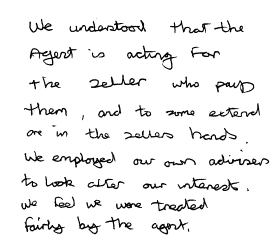 We understood that the
Agent is acting for
the seller who pays
them, and to some extend
are in the sellers hands.
We employed our own advisers
to look after our interest.
We feel we were treated
fairly by the agent.